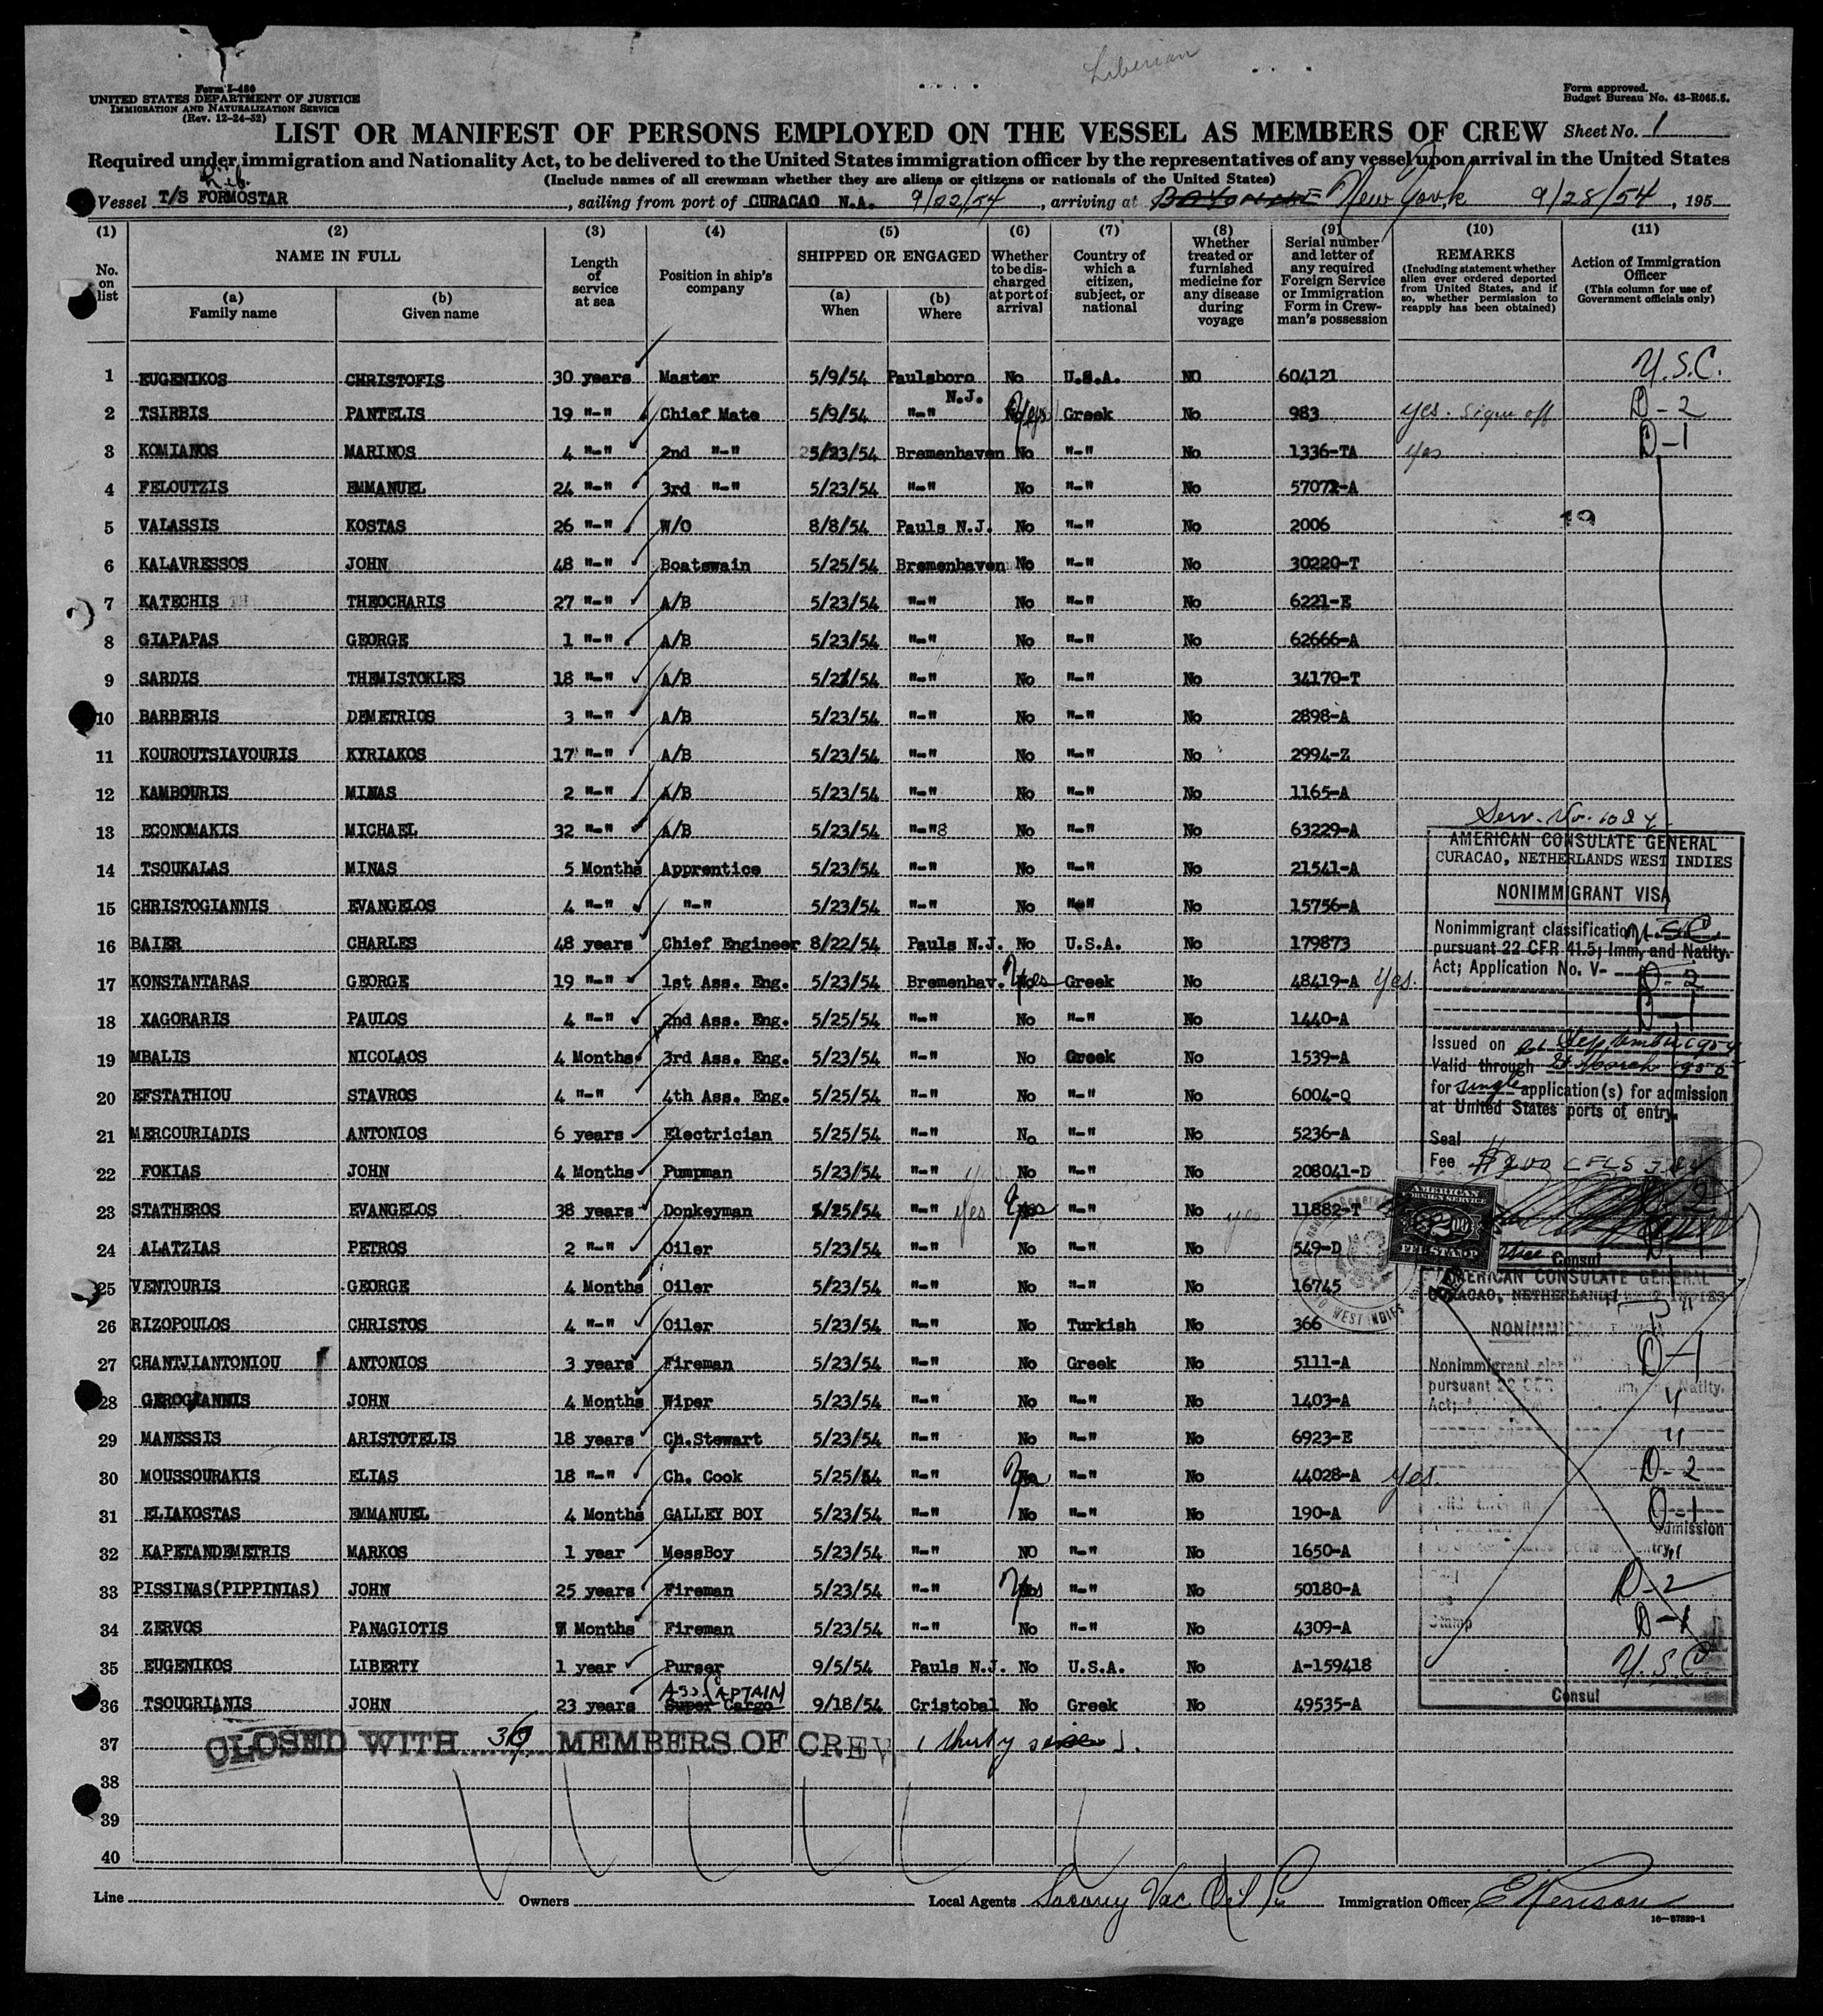 Liberian
Form I-480
UNITED STATES DEPARTMENT OF JUSTICE
IMMIGRATION AND NATURALIZATION SERVICE
(Rev. 12-24-52)
Form approved.
Budget Bureau No. 43-R065.5.
LIST OR MANIFEST OF PERSONS EMPLOYED ON THE VESSEL AS MEMBERS OF CREW Sheet No. 1
Required under immigration and Nationality Act, to be delivered to the United States immigration officer by the representatives of any vessel upon arrival in the United States
(Include names of all crewman whether they are aliens or citizens or nationals of the United States)
Lib.
Vessel T/S FORMOSTAR, sailing from port of CURACAO N.A. 9/22/54, arriving at BAYONNE New York 9/28/54, 195
(1) (2) (3) (4) (5) (6) (7) (8) (9) (10) (11)
No. on list NAME IN FULL (a) Family name (b) Given name Length of service at sea Position in ship's company SHIPPED OR ENGAGED (a) When (b) Where Whether to be discharged at port of arrival Country of which a citizen, subject, or national Whether treated or furnished medicine for any disease during voyage Serial number and letter of any required Foreign Service or Immigration Form in Crewman's possession REMARKS (Including statement whether alien ever ordered deported from United States, and if so, whether permission to reapply has been obtained) Action of Immigration Officer (This column for use of Government officials only)
1 EUGENIKOS CHRISTOFIS 30 years Master 5/9/54 Paulsboro N.J. No U.S.A. NO 604121 U.S.C.
2 TSIRBIS PANTELIS 19 "-" Chief Mate 5/9/54 "-" No Yes Greek No 983 yes. Sign off D-2
3 KOMIANOS MARINOS 4 "-" 2nd "-" 5/23/54 Bremenhaven No "-" No 1336-TA yes D-1
4 FELOUTZIS EMMANUEL 24 "-" 3rd "-" 5/23/54 "-" No "-" No 57072-A
5 VALASSIS KOSTAS 26 "-" W/O 8/8/54 Pauls N.J. No "-" No 2006
6 KALAVRESSOS JOHN 48 "-" Boatswain 5/25/54 Bremenhaven No "-" No 30220-T
7 KATECHIS THEOCHARIS 27 "-" A/B 5/23/54 "-" No "-" No 6221-E
8 GIAPAPAS GEORGE 1 "-" A/B 5/23/54 "-" No "-" No 62666-A
9 SARDIS THEMISTOKLES 18 "-" A/B 5/21/54 "-" No "-" No 34170-T
10 BARBERIS DEMETRIOS 3 "-" A/B 5/23/54 "-" No "-" No 2898-A
11 KOUROUTSIAVOURIS KYRIAKOS 17 "-" A/B 5/23/54 "-" No "-" No 2994-Z
12 KAMBOURIS MINAS 2 "-" A/B 5/23/54 "-" No "-" No 1165-A
13 ECONOMAKIS MICHAEL 32 "-" A/B 5/23/54 "-"8 No "-" No 63229-A
14 TSOUKALAS MINAS 5 Months Apprentice 5/23/54 "-" No "-" No 21541-A
15 CHRISTOGIANNIS EVANGELOS 4 "-" "-" 5/23/54 "-" No "-" No 15756-A
16 BAIER CHARLES 48 years Chief Engineer 8/22/54 Pauls N.J. No U.S.A. No 179873 U.S.C.
17 KONSTANTARAS GEORGE 19 "-" 1st Ass. Eng. 5/23/54 Bremenhav. No Yes Greek No 48419-A Yes. D-2
18 XAGORARIS PAULOS 4 "-" 2nd Ass. Eng. 5/25/54 "-" No "-" No 1440-A D-1
19 MBALIS NICOLAOS 4 Months 3rd Ass. Eng. 5/23/54 "-" No Greek No 1539-A
20 EFSTATHIOU STAVROS 4 "-" 4th Ass. Eng. 5/25/54 "-" No "-" No 6004-Q
21 MERCOURIADIS ANTONIOS 6 years Electrician 5/25/54 "-" No "-" No 5236-A
22 FOKIAS JOHN 4 Months Pumpman 5/23/54 "-" No "-" No 208041-D
23 STATHEROS EVANGELOS 38 years Donkeyman 5/25/54 "-" yes Yes "-" No yes 11882-T
24 ALATZIAS PETROS 2 "-" Oiler 5/23/54 "-" No "-" No 549-D
25 VENTOURIS GEORGE 4 Months Oiler 5/23/54 "-" No "-" No 16745
26 RIZOPOULOS CHRISTOS 4 "-" Oiler 5/23/54 "-" No Turkish No 366
27 CHANTJIANTONIOU ANTONIOS 3 years Fireman 5/23/54 "-" No Greek No 5111-A D-1
28 GEROGIANNIS JOHN 4 Months Wiper 5/23/54 "-" No "-" No 1403-A "
29 MANESSIS ARISTOTELIS 18 years Ch.Stewart 5/23/54 "-" No "-" No 6923-E "
30 MOUSSOURAKIS ELIAS 18 "-" Ch. Cook 5/25/54 "-" No "-" No 44028-A Yes. D-2
31 ELIAKOSTAS EMMANUEL 4 Months GALLEY BOY 5/23/54 "-" No "-" No 190-A D-1
32 KAPETANDEMETRIS MARKOS 1 year MessBoy 5/23/54 "-" NO "-" No 1650-A "
33 PISSINAS(PIPPINIAS) JOHN 25 years Fireman 5/23/54 "-" Yes "-" No 50180-A D-2
34 ZERVOS PANAGIOTIS Months Fireman 5/23/54 "-" No "-" No 4309-A D-1
35 EUGENIKOS LIBERTY 1 year Purser 9/5/54 Pauls N.J. No U.S.A. No A-159418 U.S.C.
36 TSOUGRIANIS JOHN 23 years Super Cargo ASS. CAPTAIN 9/18/54 Cristobal No Greek No 49535-A
37 CLOSED WITH 36 MEMBERS OF CREW (thirty six).
38
39
40
Serv. No. 1024
AMERICAN CONSULATE GENERAL
CURACAO, NETHERLANDS WEST INDIES
NONIMMIGRANT VISA
Nonimmigrant classification
pursuant 22 CFR 41.5; Imm. and Natlty.
Act; Application No. V-
Issued on 21 September 1954
Valid through 21 March 1955
for single application(s) for admission
at United States ports of entry.
Seal
Fee
AMERICAN
FOREIGN SERVICE
FEE STAMP
Vice Consul
AMERICAN CONSULATE GENERAL
CURACAO, NETHERLANDS WEST INDIES
Nonimmigrant
pursuant 22 CFR
Natlty.
Act;
admission
Stamp
Consul
WEST INDIES
Line Owners Local Agents Socony Vac Oil Co Immigration Officer
16-67889-1